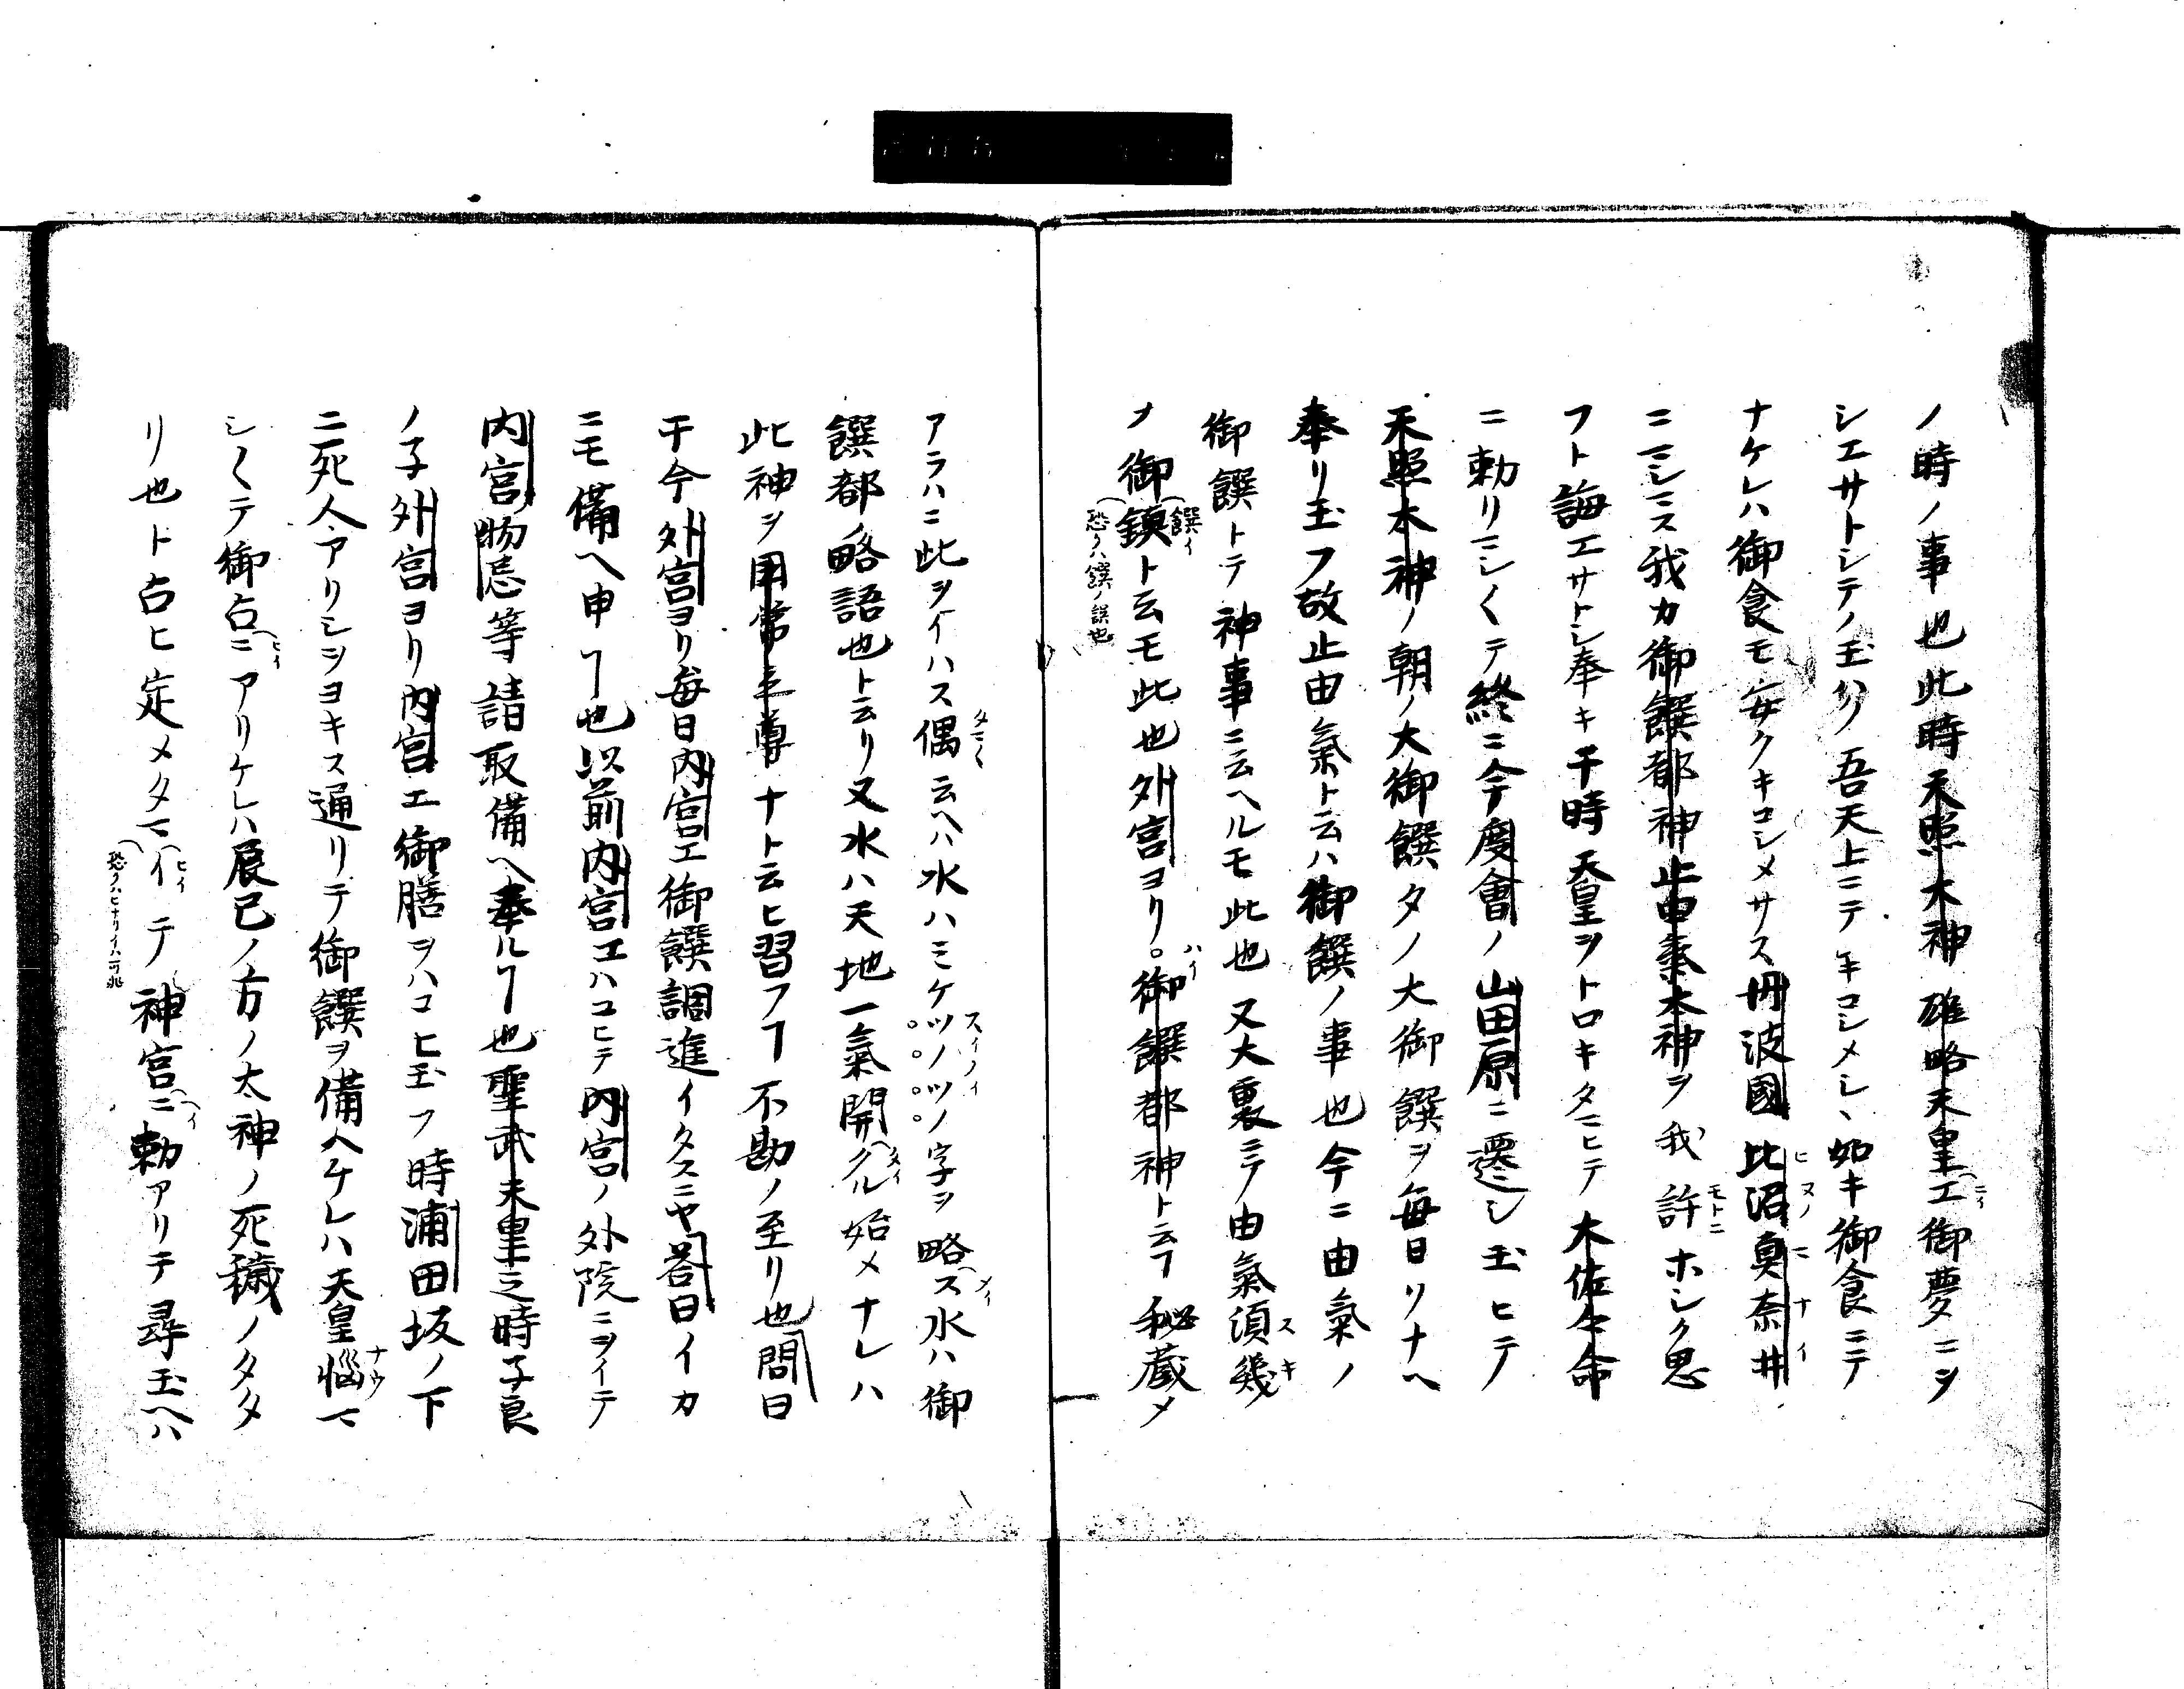 ノ時ノ事也此時天照太神雄略天皇エ御夢ニヲ
シエサトシテノ玉ハク吾天上ニテキコシメシヽ如キ御食ニテ
ナケレハ御食モ安クキコシメサス丹波國比沼真奈井
ニマシマス我カ御饌都神止由氣太神ヲ我許ホシク思
フト誨エサトシ奉キ于時天皇ヲトロキタマヒテ大佐々命
ニ勅リマシ〱テ終ニ今度會ノ山田原ニ遷シ玉ヒテ
天照太神ノ朝ノ大御饌夕ノ大御饌ヲ毎日ソナヘ
奉リ玉フ故止由氣ト云ハ御饌ノ事也今ニ由氣ノ
御饌トテ神事ニ云ヘルモ此也又大裏ニテ由氣須幾
ノ御鎮ト云モ此也外宮ヨリ御饌都神ト云ヿ秘蔵メ
アラハニ此ヲイハス偶云ヘハ水ハミケツノツノ字ヲ略ス水ハ御
饌都ノ略語也ト云リ又水ハ天地一氣開クル始メナレハ
此神ヲ国常立尊ナト云ヒ習フヿ不勘ノ至リ也問曰
于今外宮ヨリ毎日内宮エ御饌調進イタスニヤ答曰イカ
ニモ備ヘ申ヿ也以前内宮エハコヒテ内宮ノ外院ニヲイテ
内宮物忌等請取備ヘ奉ルヿ也聖武天皇之時子良
ノ子外宮ヨリ内宮エ御膳ヲハコヒ玉フ時浦田坂ノ下
ニ死人アリシヲヨキス通リテ御饌ヲ備ヘケレハ天皇惱マ
シ〱テ御占ニアリケレハ辰巳ノ方ノ太神ノ死穢ノタタ
リ也ト占ヒ定メタマイテ神宮ニ勅アリテ尋玉ヘハ